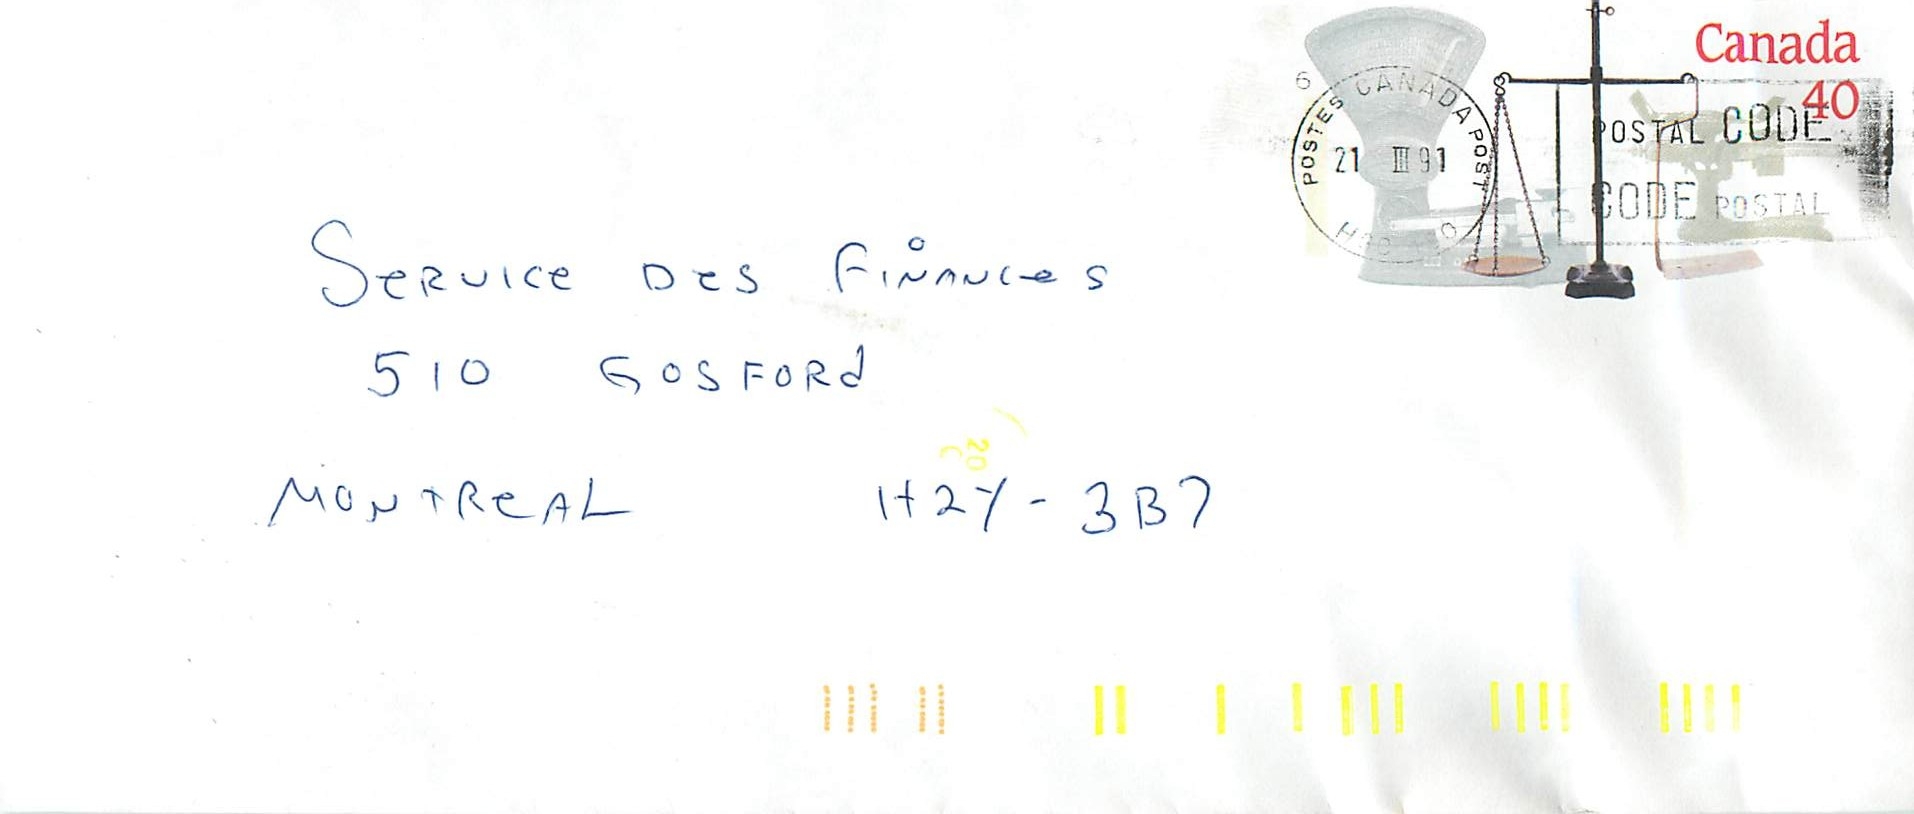 Canada
40
6
POSTES CANADA POST
21 III 91
POSTAL CODE
CODE POSTAL
SERVICE DES FINANCES
510 GOSFORD
20
MONTREAL H2Y - 3B7